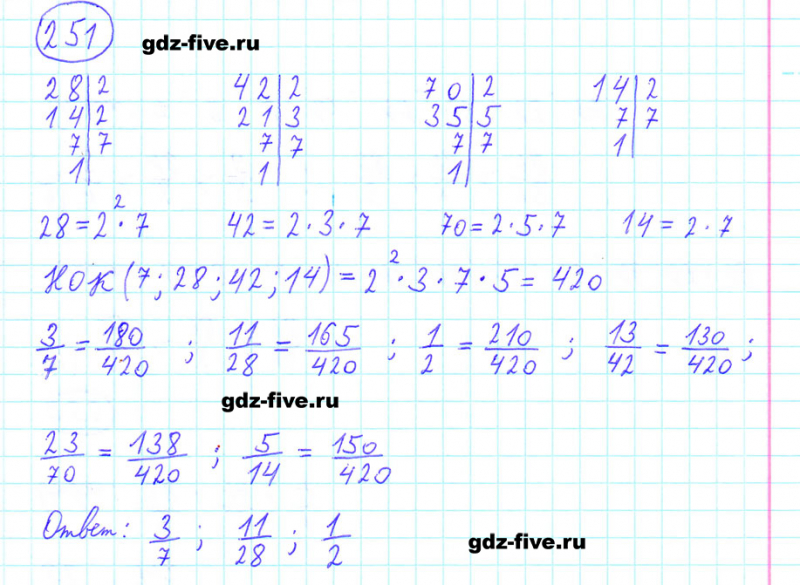 251
gdz-five.ru
28 | 2 42 | 2 70 | 2 14 | 2
14 | 2 21 | 3 35 | 5 7 | 7
7 | 7 7 | 7 7 | 7 1
1 1 1
28 = 2² · 7 42 = 2 · 3 · 7 70 = 2 · 5 · 7 14 = 2 · 7
НОК (7; 28; 42; 14) = 2² · 3 · 7 · 5 = 420
3/7 = 180/420 ; 11/28 = 165/420 ; 1/2 = 210/420 ; 13/42 = 130/420 ;
gdz-five.ru
23/70 = 138/420 ; 5/14 = 150/420
Ответ: 3/7 ; 11/28 ; 1/2
gdz-five.ru